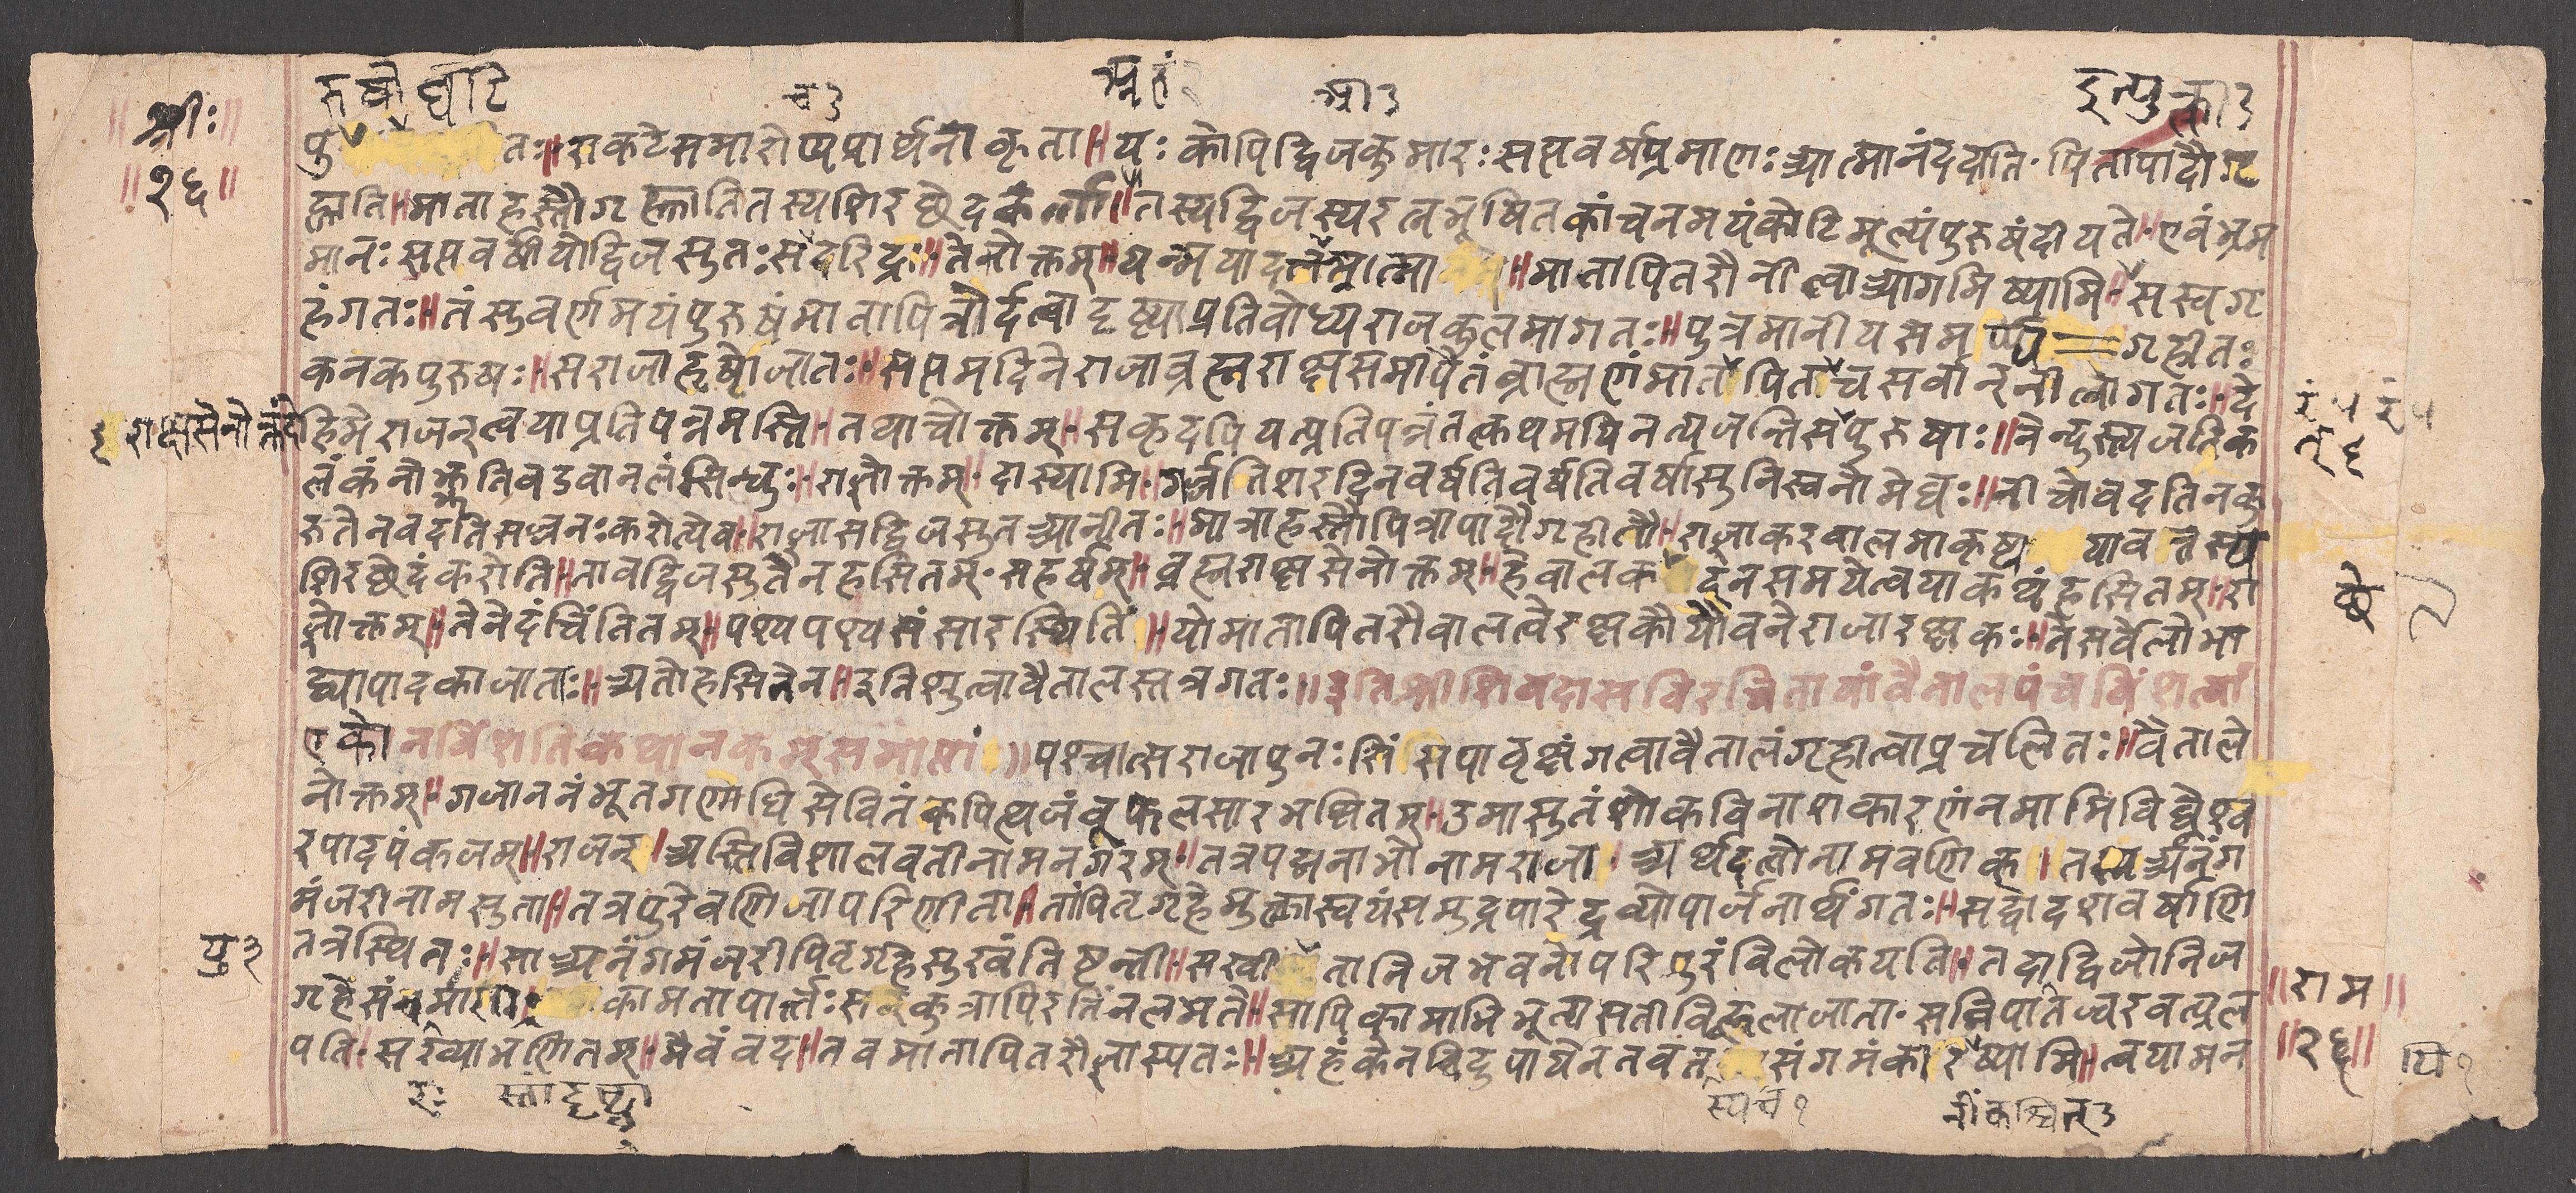 रुषो घटि
च३
ब्रतं
आ३
इत्युक्ता३
श्रीः
॥२६॥
पु तः॥शकटेसमारोप्यप्रार्थनाकृता॥यःकोपिद्विजकुमारःसप्तवर्षप्रमाणःआत्मानंददाति·पितापादौगृ
ह्णाति॥माताहस्तौगृह्णातितस्यशिरछेदकर्त्ता॥तस्यद्विजस्यरत्नभूषितकांचनमयंकोटिमूल्यंपुरुषंदीयते॥एवंभ्रम
मानःसप्तवर्षीयोद्विजसुतःसदरिद्रः॥तेनोक्तम्॥यन्मयादत्तमात्मा म्॥मातापितरौनीत्वाआगमिष्यामि॥सस्वगृ
हंगतः॥तंसुवर्णमयंपुरुषंमातापित्रोर्दत्वादृष्ट्याप्रतिबोध्यराजकुलमागतः॥पुत्रमानीयसम र्प्य गृहीतः
कनकपुरुषः॥सराजाहृषोजातः॥सप्तमदिनेराजाब्रह्मराक्षससमीपेतंब्राह्मणंमातापिताचसर्वान्नीत्वागतः॥दे
राक्षसेनोक्तंदे
हिमेराजन्त्वयाप्रतिपन्नमस्ति॥तथाचोक्तम्॥सकृदपियत्प्रतिपन्नंतत्कथमपिनत्यजन्तिसपुरुषाः॥नेन्दुस्त्यजतिक
त्६
लंकंनोझ्झतिवडवानलंसिन्धुः॥राज्ञोक्तम्·दास्यामि॥गर्जतिशरदिनवर्षतिवर्षतिवर्षासुनिस्वनोमेघः॥नीचोवदतिनकु
रुतेनवदतिसज्जनःकरोत्येव॥राज्ञासद्विजसुतआनीतः॥मात्राहस्तौपित्रापादौगृहीतौ॥राजाकरवालमाकृष्य यावत्तस्य
शिरछेदंकरोति॥तावद्द्विजसुतेनहसितम्·सहर्षम्॥ब्रह्मराक्षसेनोक्तम्॥हेबालक दनसमयेत्वयाकथंहसितम्॥रा
छे
ज्ञोक्तम्॥तेनेदंचिंतितम्॥पश्यपश्यसंसारस्थितिं॥योमातापितरौबालत्वेरक्षकौयौवनेराजारक्षकः॥तेसर्वेलोभा
द्व्यापादकाजातः॥अतोहसितेन॥इतिश्रुत्वावैतालस्तत्रगतः॥इतिश्रीशिवदासविरचितायांवैतालपंचविंशत्यां
एकोनविंशतिकथानकम्समाप्तां॥पश्चात्सराजापुनःसिंसिपावृक्षंगत्वावैतालंगृहीत्वाप्रचलितः॥वैताले
नोक्तम्॥गजाननंभूतगणाधिसेवितंकपित्थजंबूफलसारभक्षितम्॥उमासुतंशोकविनाशकारणंनमामिविघ्नेश्व
रपादपंकजम्॥राजन्।अस्तिविशालवतीनामनगरम्॥तत्रपद्मनाभोनामराजा।अर्थदत्तोनामवणिक्॥तस्यअनंग
मंजरीनामसुता॥तत्रपुरेवणिजापरिणीता॥तांपितृगृहेमुक्तास्वयंसमुद्रपारेद्रव्योपार्जनार्थंगतः॥सद्वादशवर्षाणि
यु३
तत्रस्थितः॥साअनंगमंजरीपितृगृहेसुखंतिष्टन्ती॥सखी तानिजभवनोपरिपुरंविलोकयति॥तदाद्विजोनिज
गृहे कामतापार्त्तःसन्कुत्रापिरतिंनलभते॥सापिकामाभिभूत्यसतीविह्वलाजाता·सन्निपातज्वरवत्प्रल
॥राम॥
पति·सख्याभणितम्॥मैवंवद॥तवमातापितरौज्ञास्यतः॥अहंकेनचिदुपायेनतवत संगमंकारिष्यामि॥त्वयामन
॥२६॥
यि१
रः
स्तांदृष्ट्वा
स्यच१